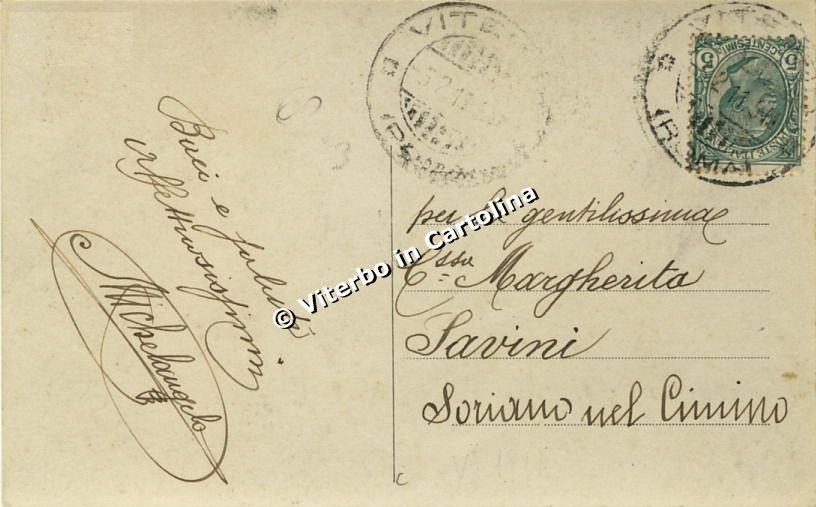 Baci e saluti
affettuosissimi
Michelangelo
VITE
5.2.11
(ROMA)
VITE
(ROMA)
CENTESIMI
5
5
per la gentilissima
C.ssa Margherita
Savini
Soriano nel Cimino
© Viterbo in Cartolina